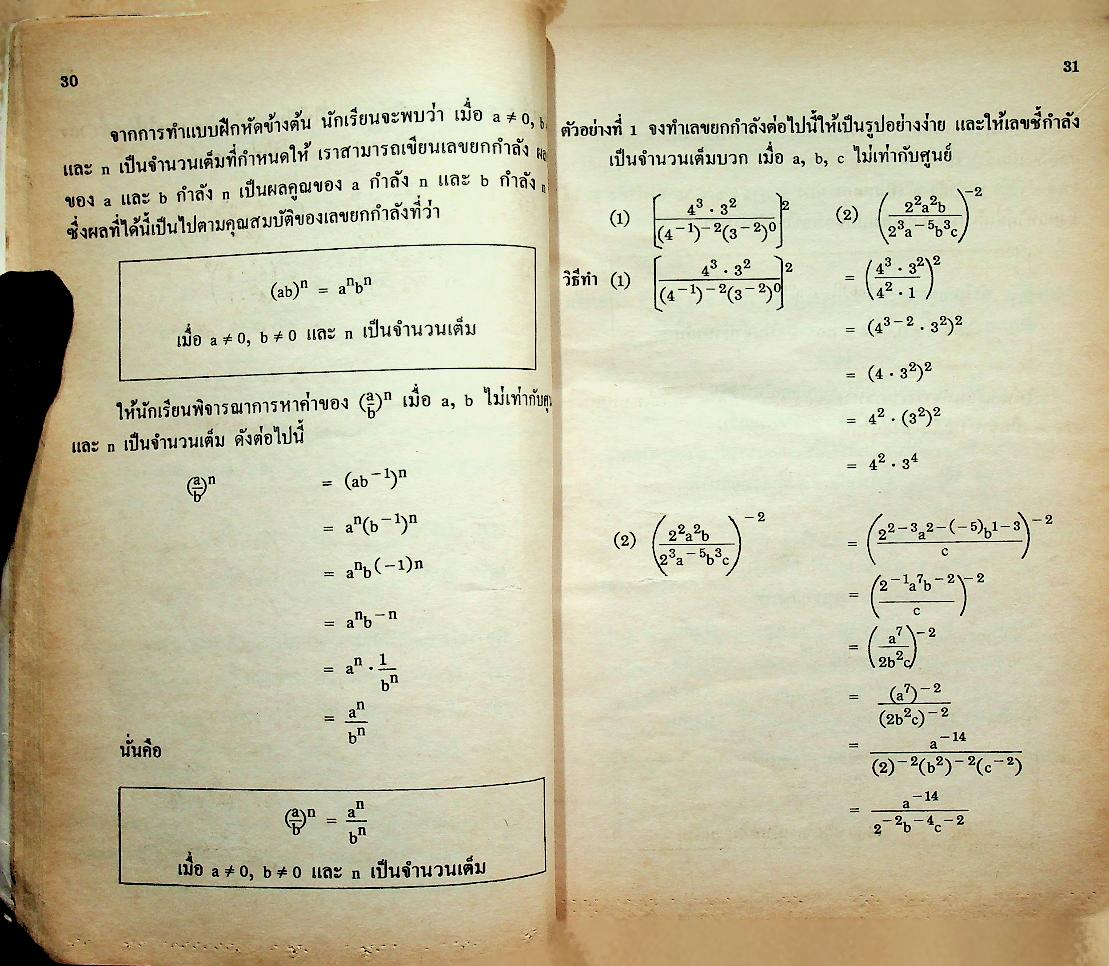 30
จากการทำแบบฝึกหัดข้างต้น นักเรียนจะพบว่า เมื่อ a ≠ 0, b
และ n เป็นจำนวนเต็มที่กำหนดให้ เราสามารถเขียนเลขยกกำลัง
ของ a และ b กำลัง n เป็นผลคูณของ a กำลัง n และ b กำลัง n
ซึ่งผลที่ได้นี้เป็นไปตามคุณสมบัติของเลขยกกำลังที่ว่า
(ab)ⁿ = aⁿbⁿ
เมื่อ a ≠ 0, b ≠ 0 และ n เป็นจำนวนเต็ม
ให้นักเรียนพิจารณาการหาค่าของ (a/b)ⁿ เมื่อ a, b ไม่เท่ากับ
และ n เป็นจำนวนเต็ม ดังต่อไปนี้
(a/b)ⁿ = (ab⁻¹)ⁿ
= aⁿ(b⁻¹)ⁿ
= aⁿb⁽⁻¹⁾ⁿ
= aⁿb⁻ⁿ
= aⁿ · 1/bⁿ
= aⁿ/bⁿ
นั่นคือ
(a/b)ⁿ = aⁿ/bⁿ
เมื่อ a ≠ 0, b ≠ 0 และ n เป็นจำนวนเต็ม
31
ตัวอย่างที่ 1 จงทำเลขยกกำลังต่อไปนี้ให้เป็นรูปอย่างง่าย และให้เลขชี้กำลัง
เป็นจำนวนเต็มบวก เมื่อ a, b, c ไม่เท่ากับศูนย์
(1) [4³ · 3²/(4⁻¹)⁻²(3⁻²)⁰]² (2) (2²a²b/2³a⁻⁵b³c)⁻²
วิธีทำ (1) [4³ · 3²/(4⁻¹)⁻²(3⁻²)⁰]² = (4³ · 3²/4² · 1)²
= (4³⁻² · 3²)²
= (4 · 3²)²
= 4² · (3²)²
= 4² · 3⁴
(2) (2²a²b/2³a⁻⁵b³c)⁻² = (2²⁻³a²⁻⁽⁻⁵⁾b¹⁻³/c)⁻²
= (2⁻¹a⁷b⁻²/c)⁻²
= (a⁷/2b²c)⁻²
= (a⁷)⁻²/(2b²c)⁻²
= a⁻¹⁴/(2)⁻²(b²)⁻²(c⁻²)
= a⁻¹⁴/2⁻²b⁻⁴c⁻²